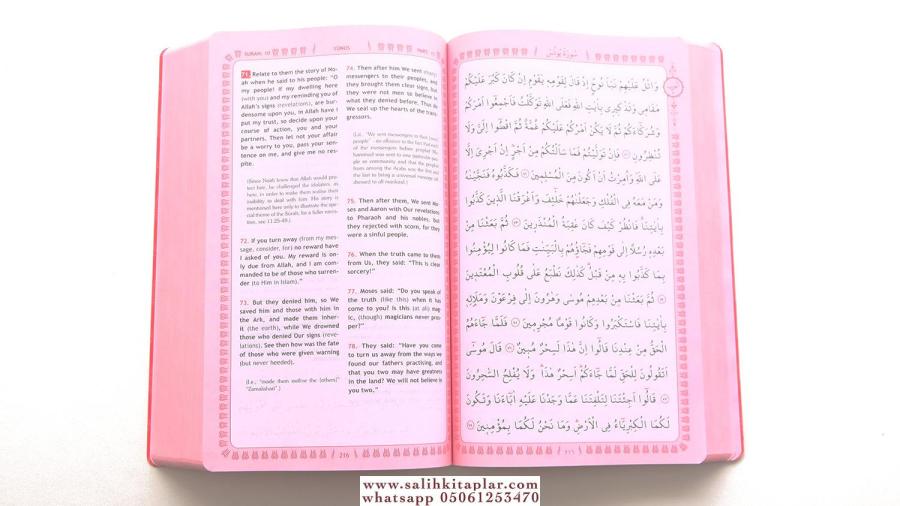 SURAH: 10
YÛNUS
PART: 11
71. Relate to them the story of No-
ah when he said to his people: "O
my people! If my dwelling here
(with you) and my reminding you of
Allah's signs (revelations), are bur-
densome upon you, in Allah have I
put my trust, so decide upon your
course of action, you and your
partners. Then let not your affair
be a worry to you, pass your sen-
tence on me, and give me no res-
pite.
(Since Noah knew that Allah would pro-
tect him, he challenged the idolaters, as
here, in order to make them realise their
inability to deal with him. His story is
mentioned here only to illustrate the spe-
cial theme of the Surah, for a fuller narra-
tion, see 11:25-49.)
72. If you turn away (from my mes-
sage, consider, for) no reward have
I asked of you. My reward is on-
ly due from Allah, and I am com-
manded to be of those who surren-
der (to Him in Islam)."
73. But they denied him, so We
saved him and those with him in
the Ark, and made them inher-
it (the earth), while We drowned
those who denied Our signs (reve-
lations). See then how was the fate
of those who were given warning
(but never heeded).
(I.e., "made them
74. Then after him We sent (many)
messengers to their peoples, and
they brought them clear signs, but
they were not men to believe in
what they denied before. Thus do
We seal up the hearts of the trans-
gressors.
(I.e. "We sent messengers to their (own)
people" - an allusion to the fact that each
of the messengers before prophet Mu-
hammad was sent to one particular peo-
ple or community and that the prophet
from among the Arabs was the first and
the last to bring a universal message ad-
dressed to all mankind.)
75. Then after them, We sent Mo-
ses and Aaron with Our revelations
to Pharaoh and his nobles, but
they rejected with scorn, for they
were a sinful people.
76. When the truth came to them
from Us, they said: "This is clear
sorcery!"
77. Moses said: "Do you speak of
the truth (like this) when it has
come to you? Is this (at all) mag-
ic, (though) magicians never pros-
per?"
78. They said: "Have you come
to turn us away from the ways we
found our fathers practising, and
that you two may have greatness
in the land? We will not believe in
you two."
216
سُورَةُ يُونُسَ
وَاتْلُ عَلَيْهِمْ نَبَاَ نُوحٍ اِذْ قَالَ لِقَوْمِهِ يَا قَوْمِ اِنْ كَانَ كَبُرَ عَلَيْكُمْ
مَقَامِي وَتَذْكِيرِي بِاٰيَاتِ اللّٰهِ فَعَلَى اللّٰهِ تَوَكَّلْتُ فَاَجْمِعُوا اَمْرَكُمْ
وَشُرَكَاءَكُمْ ثُمَّ لَا يَكُنْ اَمْرُكُمْ عَلَيْكُمْ غُمَّةً ثُمَّ اقْضُوا اِلَيَّ وَلَا
تُنْظِرُونِ ﴿٧١﴾ فَاِنْ تَوَلَّيْتُمْ فَمَا سَاَلْتُكُمْ مِنْ اَجْرٍ اِنْ اَجْرِيَ اِلَّا
عَلَى اللّٰهِ وَاُمِرْتُ اَنْ اَكُونَ مِنَ الْمُسْلِمِينَ ﴿٧٢﴾ فَكَذَّبُوهُ فَنَجَّيْنَاهُ
وَمَنْ مَعَهُ فِي الْفُلْكِ وَجَعَلْنَاهُمْ خَلَائِفَ وَاَغْرَقْنَا الَّذِينَ كَذَّبُوا
بِاٰيَاتِنَا فَانْظُرْ كَيْفَ كَانَ عَاقِبَةُ الْمُنْذَرِينَ ﴿٧٣﴾ ثُمَّ بَعَثْنَا مِنْ
بَعْدِهِ رُسُلًا اِلَى قَوْمِهِمْ فَجَاؤُهُمْ بِالْبَيِّنَاتِ فَمَا كَانُوا لِيُؤْمِنُوا
بِمَا كَذَّبُوا بِهِ مِنْ قَبْلُ كَذٰلِكَ نَطْبَعُ عَلَى قُلُوبِ الْمُعْتَدِينَ
﴿٧٤﴾ ثُمَّ بَعَثْنَا مِنْ بَعْدِهِمْ مُوسَى وَهٰرُونَ اِلَى فِرْعَوْنَ وَمَلَائِهِ
بِاٰيَاتِنَا فَاسْتَكْبَرُوا وَكَانُوا قَوْمًا مُجْرِمِينَ ﴿٧٥﴾ فَلَمَّا جَاءَهُمُ
الْحَقُّ مِنْ عِنْدِنَا قَالُوا اِنَّ هٰذَا لَسِحْرٌ مُبِينٌ ﴿٧٦﴾ قَالَ مُوسَى
اَتَقُولُونَ لِلْحَقِّ لَمَّا جَاءَكُمْ اَسِحْرٌ هٰذَا وَلَا يُفْلِحُ السَّاحِرُونَ
﴿٧٧﴾ قَالُوا اَجِئْتَنَا لِتَلْفِتَنَا عَمَّا وَجَدْنَا عَلَيْهِ اٰبَاءَنَا وَتَكُونَ
لَكُمَا الْكِبْرِيَاءُ فِي الْاَرْضِ وَمَا نَحْنُ لَكُمَا بِمُؤْمِنِينَ ﴿٧٨﴾
www.salihkitaplar.com
whatsapp 05061253470